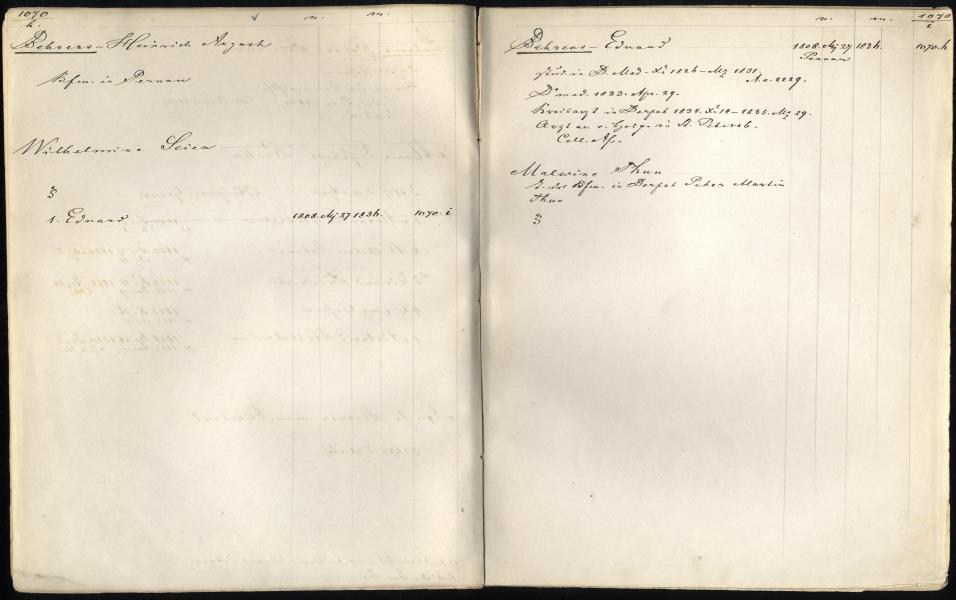 1070
h.
n. m.
Behrens - Heinrich August
Kfm. in Pernau
Wilhelmine Seien
§
1. Eduard 1808. Mj 27 1836. 1070. i
n. m. 1070
i
Behrens - Eduard 1808. Mj 27 1836. 1070. h
Pernau
stud. in D. Med. 1826 - Mz 1831.
A. a. 2229.
Dr med. 1833. Apr. 29.
Kreisarzt in Dorpat 1834. - 1835. Mz 29.
Arzt an e. Hosp. in St. Petersb.
Coll. Ass.
Malwine Thun
T. des Kfm. in Dorpat Peter Martin
Thun
§